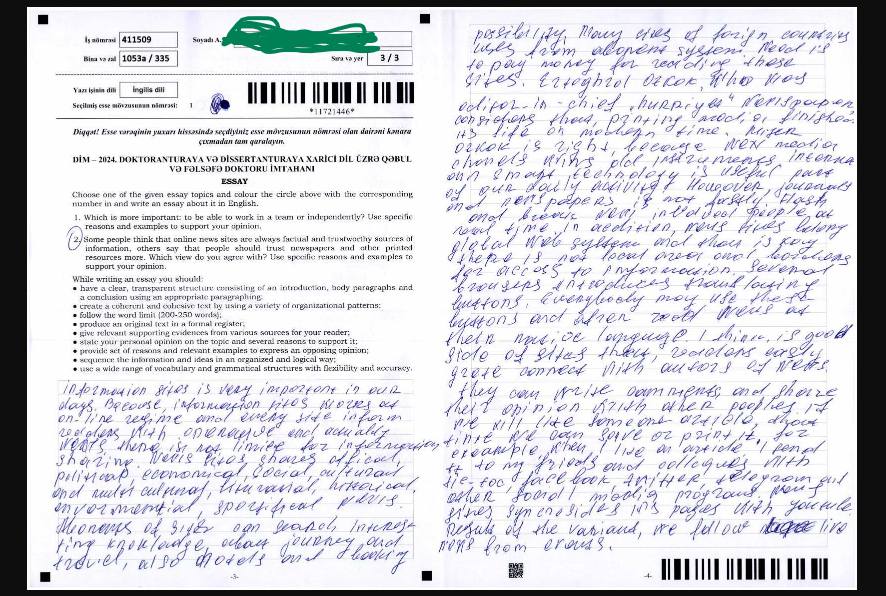 İş nömrəsi 411509
Soyadı A.
Bina və zal 1053a / 335
Sıra və yer 3 / 3
Yazı işinin dili İngilis dili
Seçilmiş esse mövzusunun nömrəsi: 1
*11721446*
Diqqət! Esse vərəqinin yuxarı hissəsində seçdiyiniz esse mövzusunun nömrəsi olan dairəni kənara
çıxmadan tam qaralayın.
DİM – 2024. DOKTORANTURAYA VƏ DİSSERTANTURAYA XARİCİ DİL ÜZRƏ QƏBUL
VƏ FƏLSƏFƏ DOKTORU İMTAHANI
ESSAY
Choose one of the given essay topics and colour the circle above with the corresponding
number in and write an essay about it in English.
1. Which is more important: to be able to work in a team or independently? Use specific
reasons and examples to support your opinion.
2. Some people think that online news sites are always factual and trustworthy sources of
information, others say that people should trust newspapers and other printed
resources more. Which view do you agree with? Use specific reasons and examples to
support your opinion.
While writing an essay you should:
• have a clear, transparent structure consisting of an introduction, body paragraphs and
a conclusion using an appropriate paragraphing;
• create a coherent and cohesive text by using a variety of organizational patterns;
• follow the word limit (200-250 words);
• produce an original text in a formal register;
• give relevant supporting evidences from various sources for your reader;
• state your personal opinion on the topic and several reasons to support it;
• provide set of reasons and relevant examples to express an opposing opinion;
• sequence the information and ideas in an organized and logical way;
• use a wide range of vocabulary and grammatical structures with flexibility and accuracy.
Information sites is very important in our
days. Because, information sites works at
on-line regime and every site inform
readers with and
News. there is not limite for information
sharing. News sites shares official,
political, economical, social, cultural
and multi cultural, historical,
News.
of sites can search interes-
ting knowledge, about journey and
travel, also hotels and booking
-3-
possibility. Many sites of foreign countries
uses from system. Need is
to pay money for reading these
sites. Ertoghrul Ozkok, Who Was
editor-in-chief "hurriyet" Newspaper
considers that, printing media finished
its life on modern time. Mister
Ozkok is right, because New media
chanels old instruments, internet
and smart technology is useful part
of our daily activity. However, journals
and newspapers is not fastly. Flash
and break News people at
real time, in addition, News sites
global Web system and that is way
there is not local area and
for access to information, several
browsers introduces
buttons. Everybody may use these
buttons and after read News at
their native language. I think, is good
side of sites that, readers easily
connect with autors of News.
They can write comments and share
their opinion with other peoples. if
We will like someone article,
time we can save or print it. for
example, When I like an article I send
it to my friends and collegues With
tic-toc, facebook, twitter, telegram and
other social media programs. News
sites pages With youtube.
of the We follow live
News from
-4-